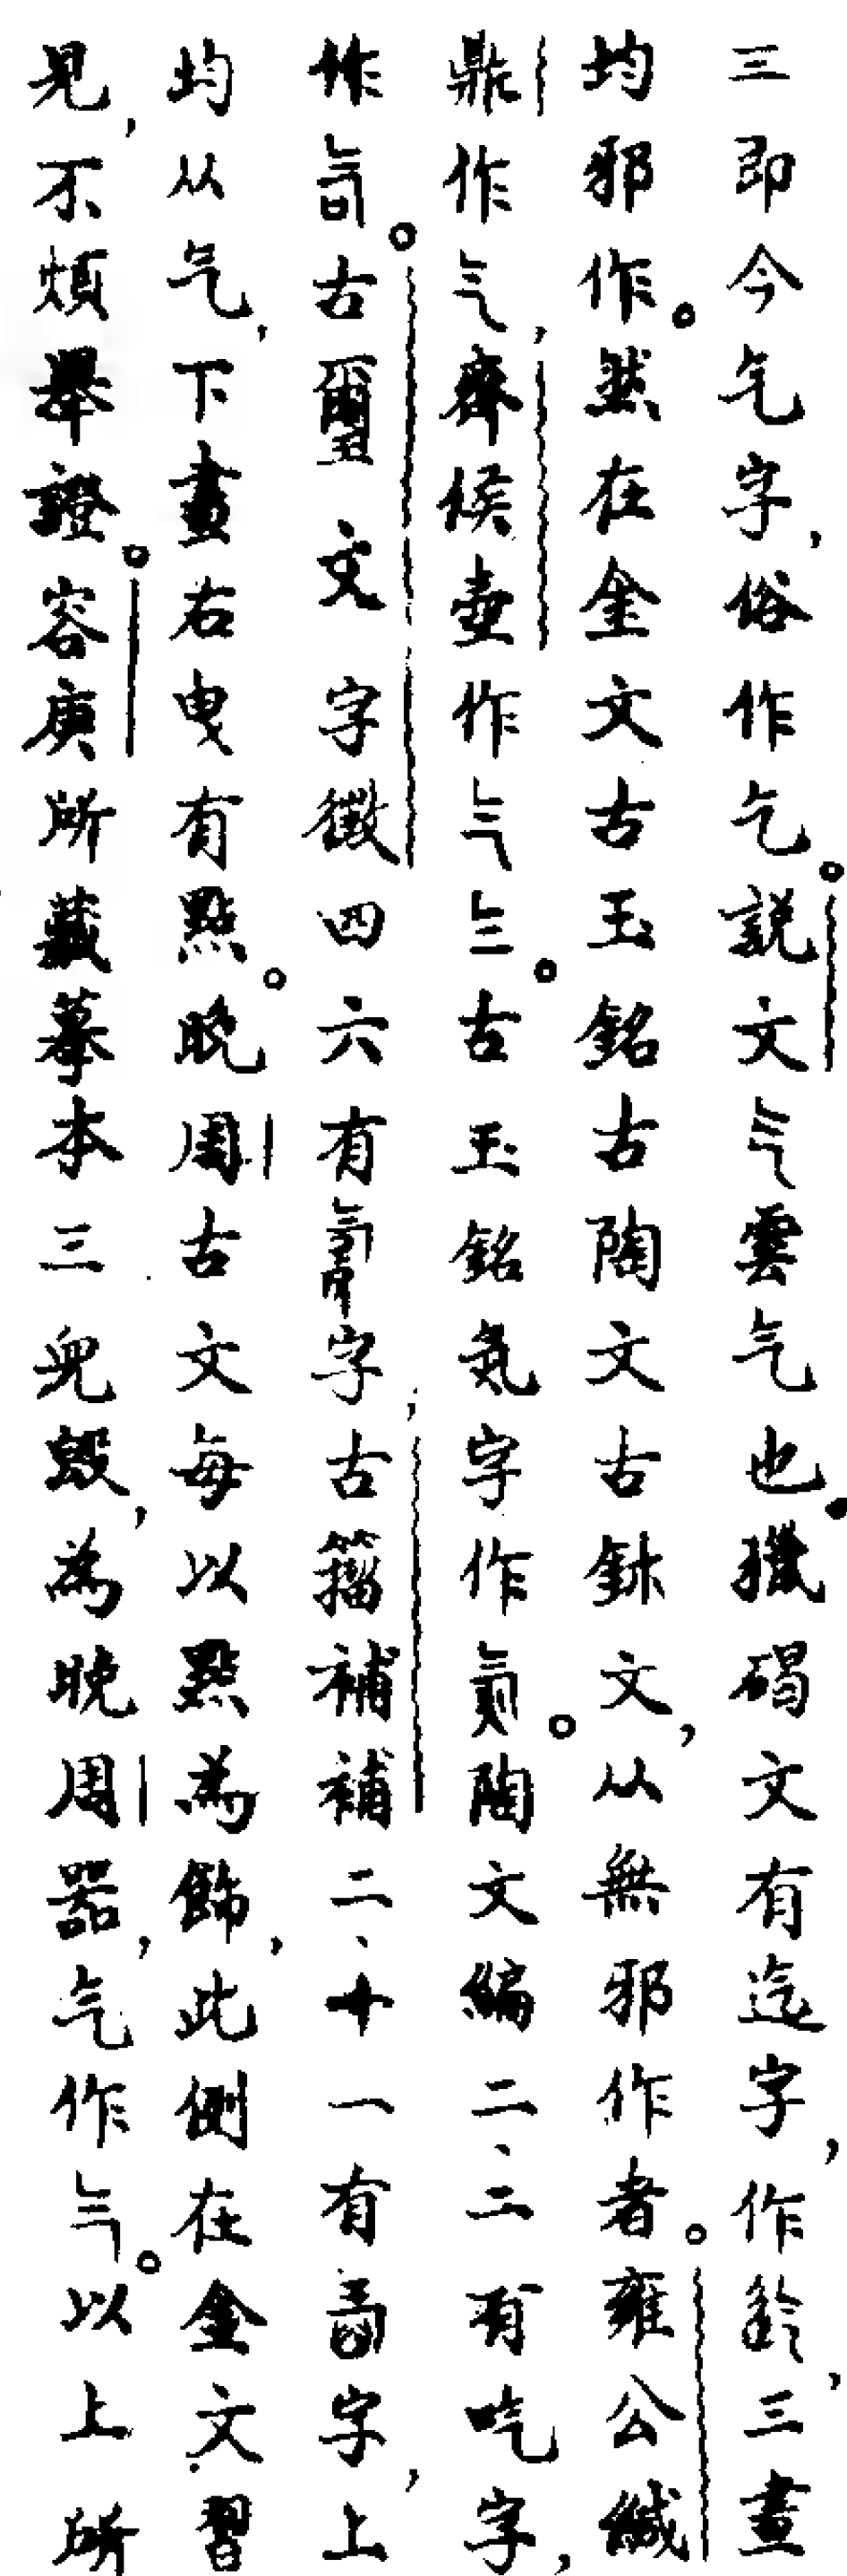 三即今气字，俗作乞。説文气雲气也。獵碣文有迄字，作，三畫
均邪作。然在金文古玉銘古陶文古鉥文，从無邪作者。雍公緘
鼎作气，齊侯壺作气三。古玉銘氣字作。陶文編二、二有吃字，
作。古璽文字徵四六有字，古籀補補二、十一有字，上
均从气，下畫右曳有點。晚周古文每以點為飾，此例在金文習
見，不煩舉證。容庚所藏摹本三兒毁，為晚周器，气作气。以上所